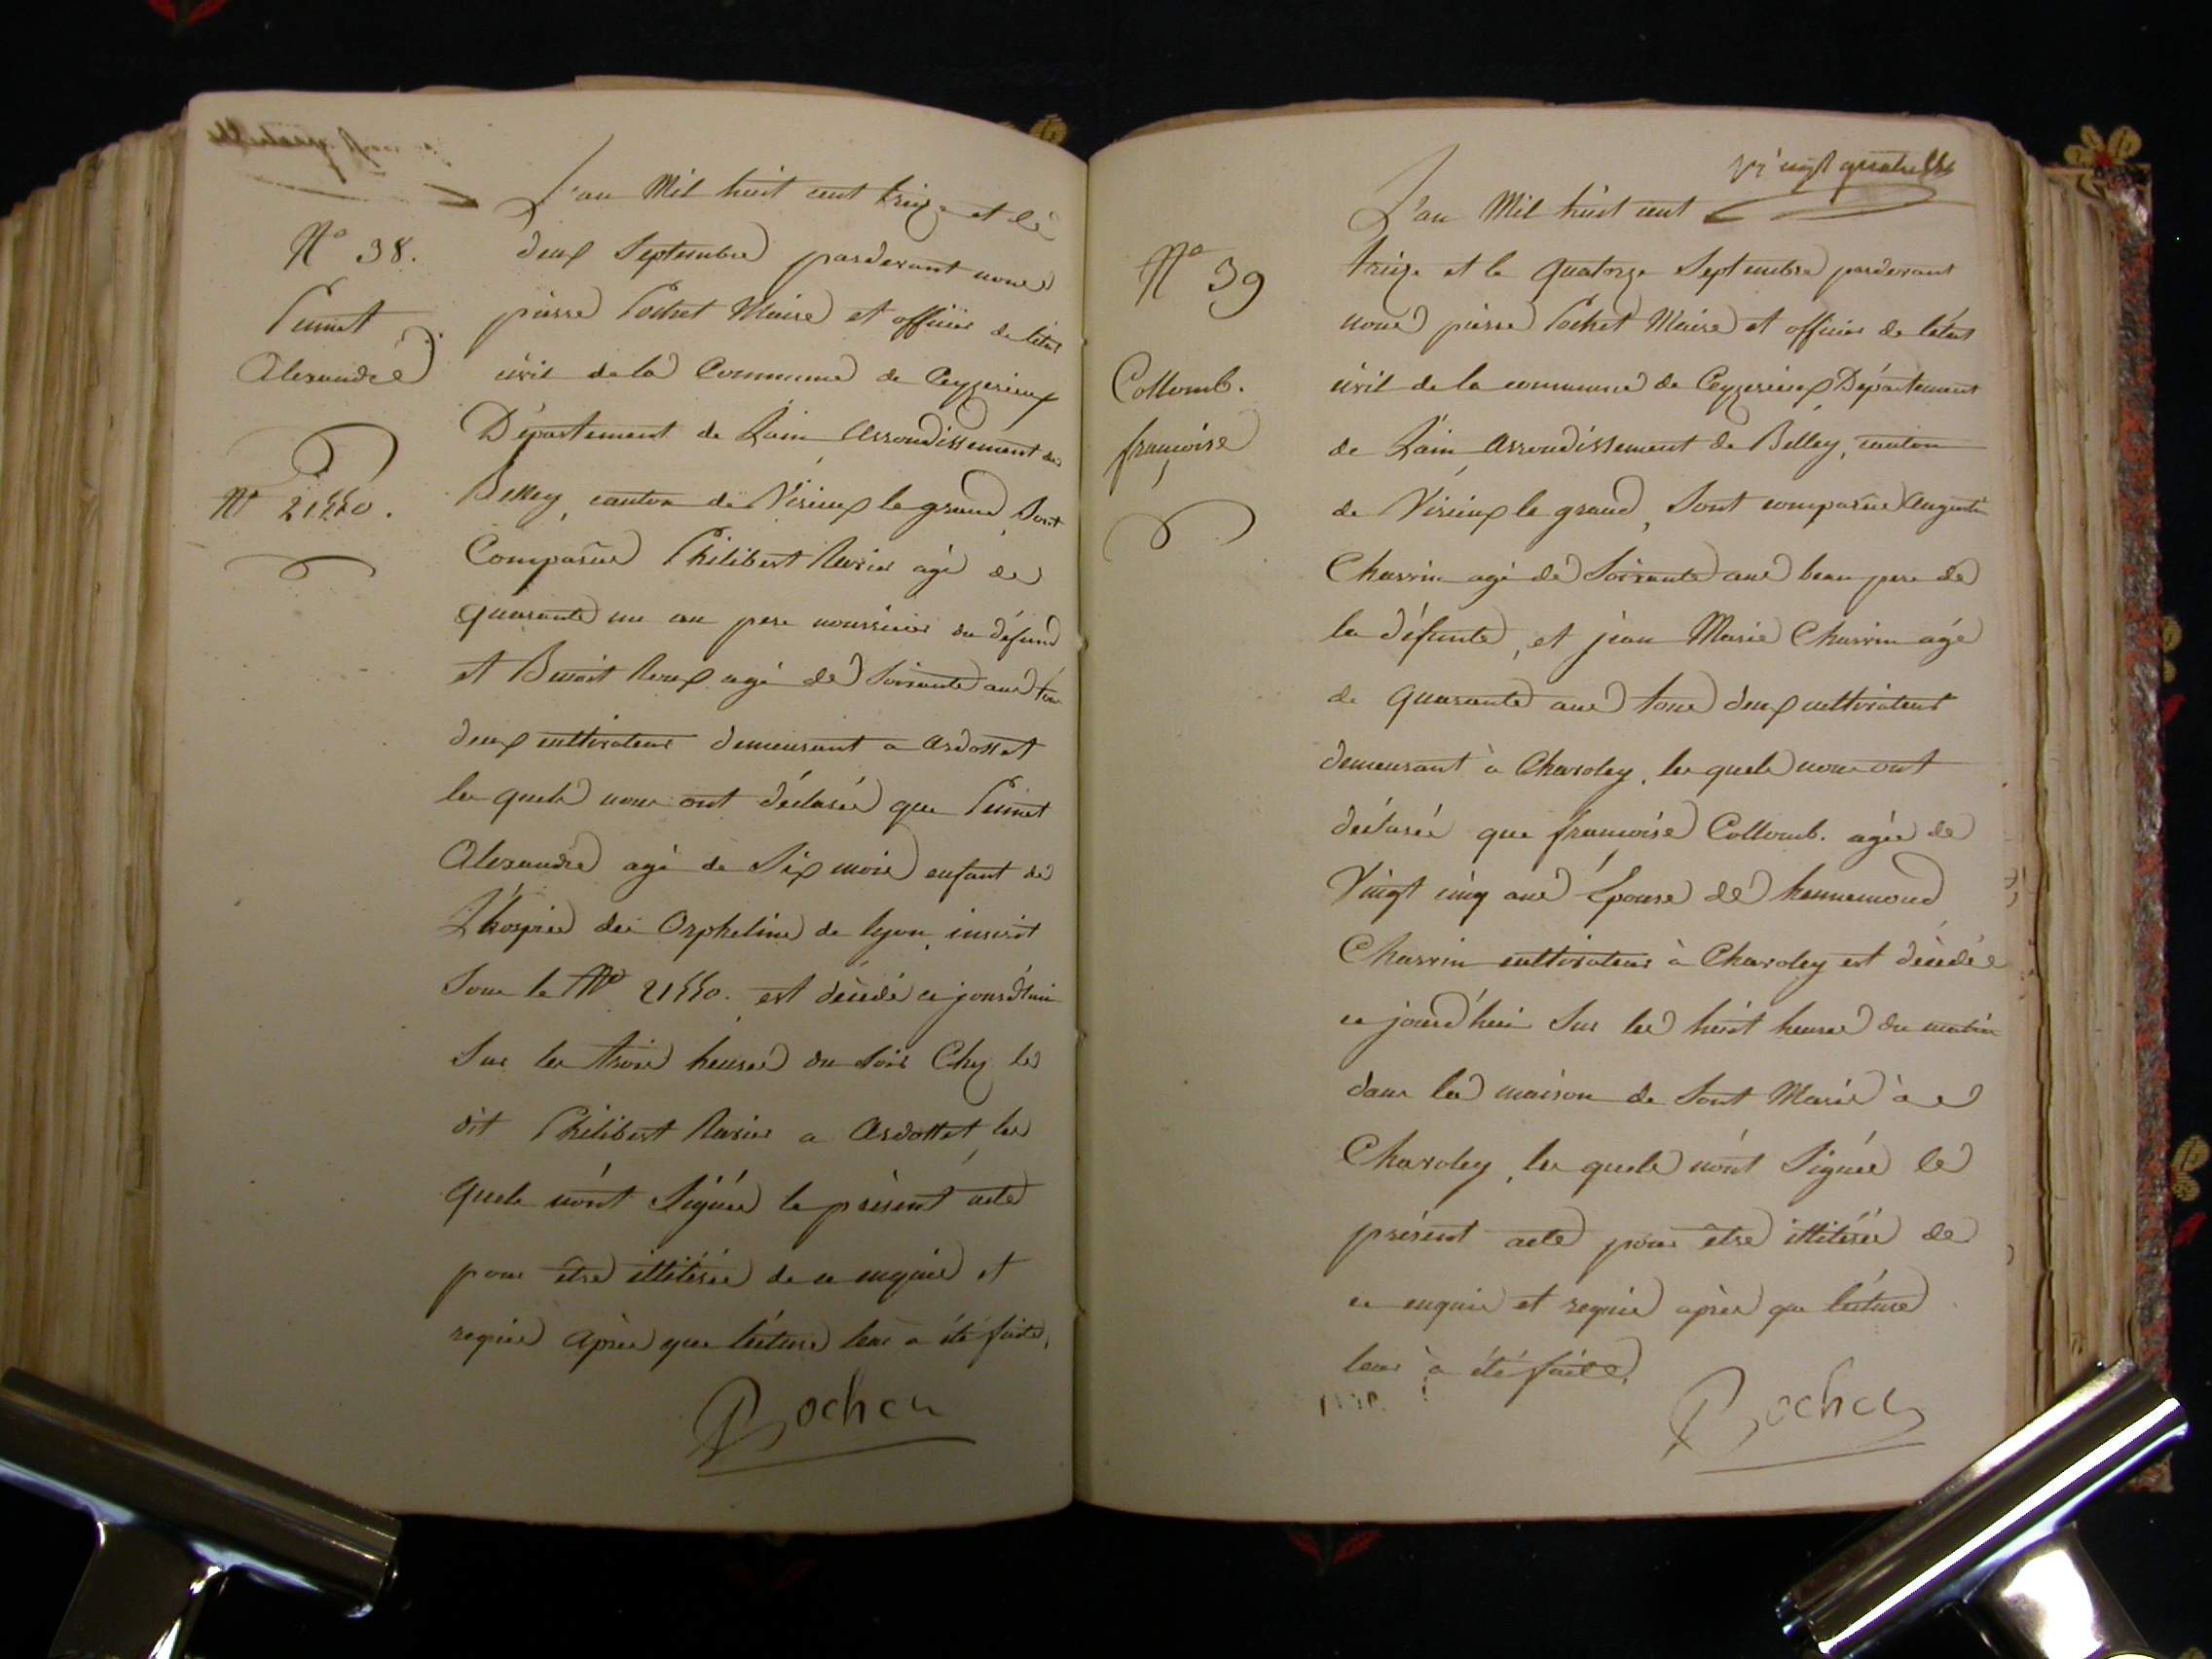 N° 38.
Alexandre
N° 21550.
L'an Mil huit cent treize et le
deux Septembre pardevant nous
pierre Pochet Maire et officier de létat
civil de la Commune de Ceyzerieux
Département de Lain Arrondissement de
Belley, canton de Virieux le grand, Sont
Comparus Philibert Ravier agé de
quarante un an pere nourricier du défund
et Benoit Roux agé de Soixante ans tous
deux cultivateur demeurant a Ardosset
les quels nous ont déclarés que
Alexandre agé de Six mois enfant de
L'hospice des Orphelins de lyon, inscrit
Sous le N° 21550. est décédé ce jourd'hui
Sur les trois heures du Soir Chez le
dit Philibert Ravier a Ardottet les
quels n'ont Signés le présent acte
pour être illitérés de ce enquis et
requis après que lecture leur a été faite,
Pochet
vingt quatre
N° 39
Collomb.
françoise
L'an Mil huit cent
treize et le quatorze Septembre pardevant
nous pierre Pochet Maire et officier de létat
civil de la commune de Ceyzerieux Département
de Lain Arrondissement de Belley, canton
de Virieux le grand, Sont comparus Augustin
Charvin agé de Soixante ans beau pere de
la défunte, et jean Marie Charvin agé
de quarante ans tous deux cultivateurs
demeurant à Charoley, les quels nous ont
déclarés que françoise Collomb. agée de
Vingt cinq ans Épouse de hennemond
Charvin cultivateur à Charoley est décédée
ce jourd'hui Sur les huit heures du matin
dans la maison de Sont Marie à
Charoley, les quels n'ont Signés le
présent acte pour être illitérés de
ce enquis et requis après que lecture
leur à été faite,
Pochet